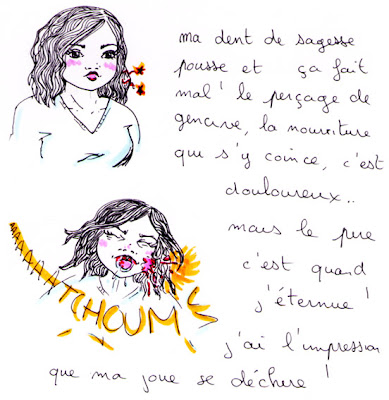 ma dent de sagesse
pousse et ça fait
mal ! le perçage de
gencive, la nourriture
que s'y coince, c'est
douloureux..
mais le pire
c'est quand
j'éternue !
MAAAAATCHOUM
j'ai l'impression
que ma joue se déchire !